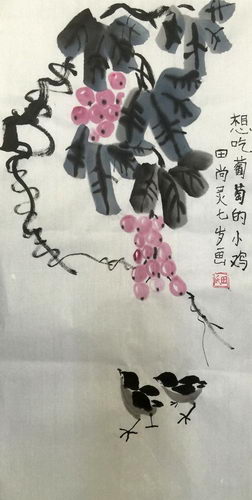 想吃葡萄的小鸡
田尚灵七岁画